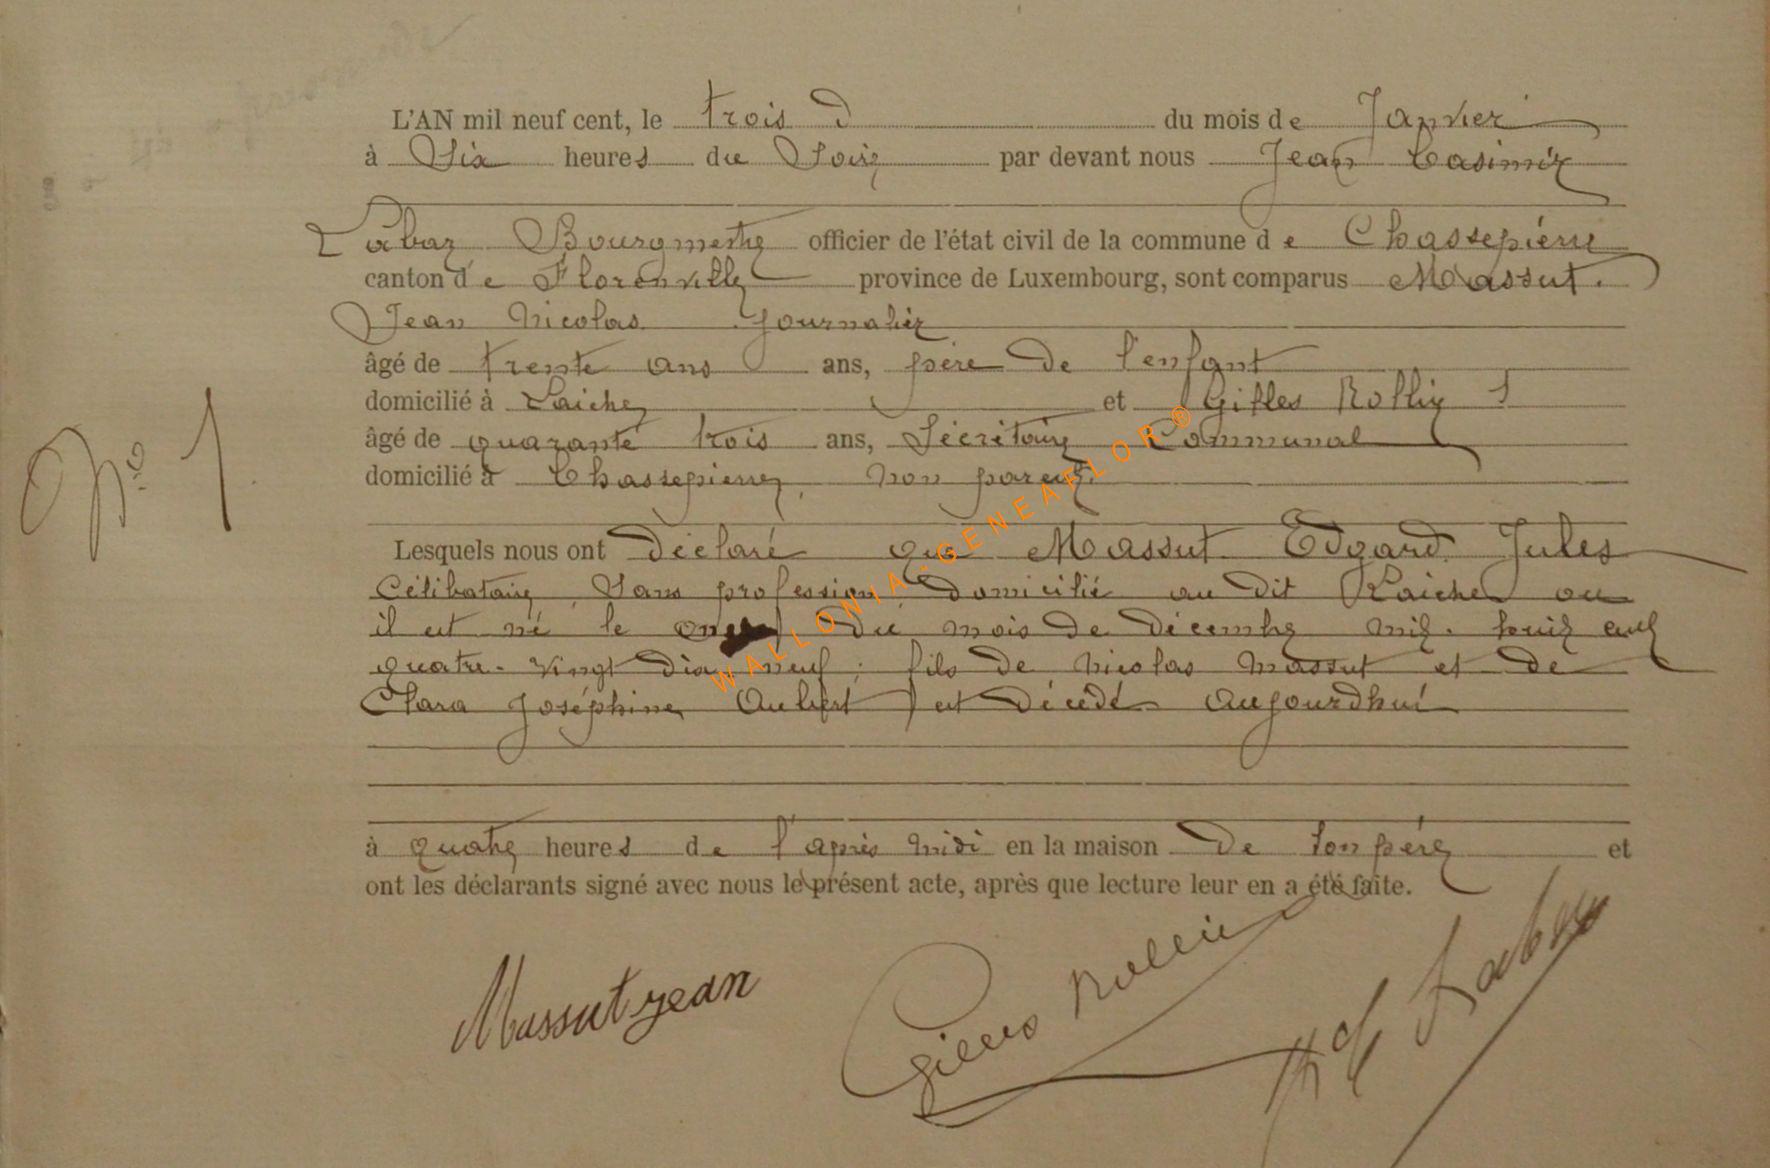 L'AN mil neuf cent, le trois du mois de Janvier
à Six heures du Soir par devant nous Jean Casimir
Labar Bourgmestre officier de l'état civil de la commune de Chassepierre
canton de Florenville province de Luxembourg, sont comparus Massut
Jean Nicolas Journalier
âgé de trente ans ans, père de l'enfant
domicilié à Laiche et Gilles Rollin
âgé de quarante trois ans, Sécrétaire Communal
domicilié à Chassepierre, non parent.
N° 1
Lesquels nous ont déclaré que Massut Edgard Jules
Célibataire, Sans profession, domicilié au dit Laiche ou
il est né le onze du mois de décembre mil huit cent
quatre-vingt dix neuf; fils de Nicolas Massut et de
Clara Joséphine Aubert, est décédé aujourdhui
à quatre heures de l'après midi en la maison de son père et
ont les déclarants signé avec nous le présent acte, après que lecture leur en a été faite.
Massut jean Gilles Rollin Labar
WALLONIA-GENEAFLOR®